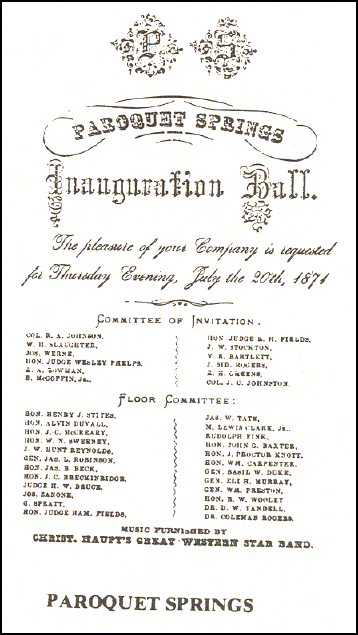 P S
PAROQUET SPRINGS
Inauguration Ball.
The pleasure of your Company is requested
for Thursday Evening, July the 20th, 1871
COMMITTEE OF INVITATION.
COL. R. A. JOHNSON,
W. H. SLAUGHTER,
JOS. WERNE,
HON. JUDGE WESLEY PHELPS,
R. A. BOWMAN,
B. McGOFFIN, JR.,
HON JUDGE R. H. FIELDS,
J. W. STOCKTON,
V. R. BARTLETT,
J. SID. ROGERS,
R. H. GREENE,
COL. J. C. JOHNSTON.
FLOOR COMMITTEE:
HON. HENRY J. STITES,
HON. ALVIN DUVALL,
HON. J. C. McCREARY,
HON. W. N. SWEENEY,
J. W. HUNT REYNOLDS,
GEN. JAS. L. ROBINSON,
HON. JAS. B. BECK,
HON. J. C. BRECKINRIDGE,
JUDGE H. W. BRUCE,
JOS. ZANONE,
G. SPRATT,
HON. JUDGE HAM. FIELDS,
JAS. W. TATE,
M. LEWIS CLARK, JR.,
RUDOLPH FINK,
HON. JOHN G. BAXTER,
HON. J. PROCTOR KNOTT,
HON. WM. CARPENTER,
GEN. BASIL W. DUKE,
GEN. ELI H. MURRAY,
GEN. WM. PRESTON,
HON. R. W. WOOLEY
DR. D. W. YANDELL,
DR. COLEMAN ROGERS.
MUSIC FURNISHED BY
CHRIST. HAUPT'S GREAT WESTERN STAR BAND.
PAROQUET SPRINGS